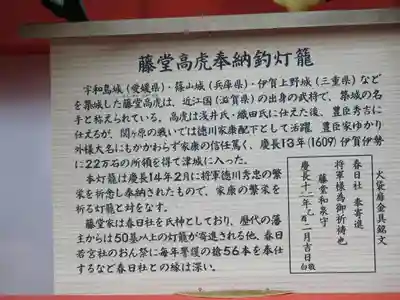 藤堂高虎奉納釣灯籠
宇和島城(愛媛県)・篠山城(兵庫県)・伊賀上野城(三重県)など
を築城した藤堂高虎は、近江国(滋賀県)の出身の武将で、築城の名
手と称えられている。高虎は浅井氏・織田氏に仕えた後、豊臣秀吉に
仕えるが、関ヶ原の戦いでは徳川家康配下として活躍。豊臣家ゆかり
外様大名にもかかわらず家康の信任篤く、慶長13年(1609)伊賀伊勢
に22万石の所領を得て津城に入った。
本灯籠は慶長14年2月に将軍徳川秀忠の繁
栄を祈念し奉納されたもので、家康の繁栄を
祈る灯籠と対をなす。
藤堂家は春日社を氏神としており、歴代の藩
主からは50基以上の灯籠が寄進される他、春日
若宮社のおん祭に毎年警護の槍56本を奉仕
するなど春日社との縁は深い。
火袋扉金具銘文
春日社 奉寄進
将軍様為御祈祷也
藤堂和泉守
慶長十二年乙二月吉日
敬白